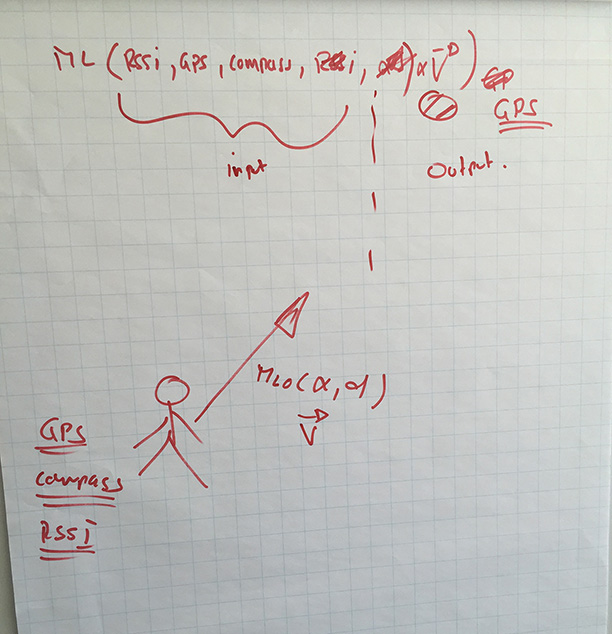 ML (RSSi, GPS, compass, RSSi, α V)
GPS
input
Output.
MLO (α, d)
V
GPS
compass
RSSi